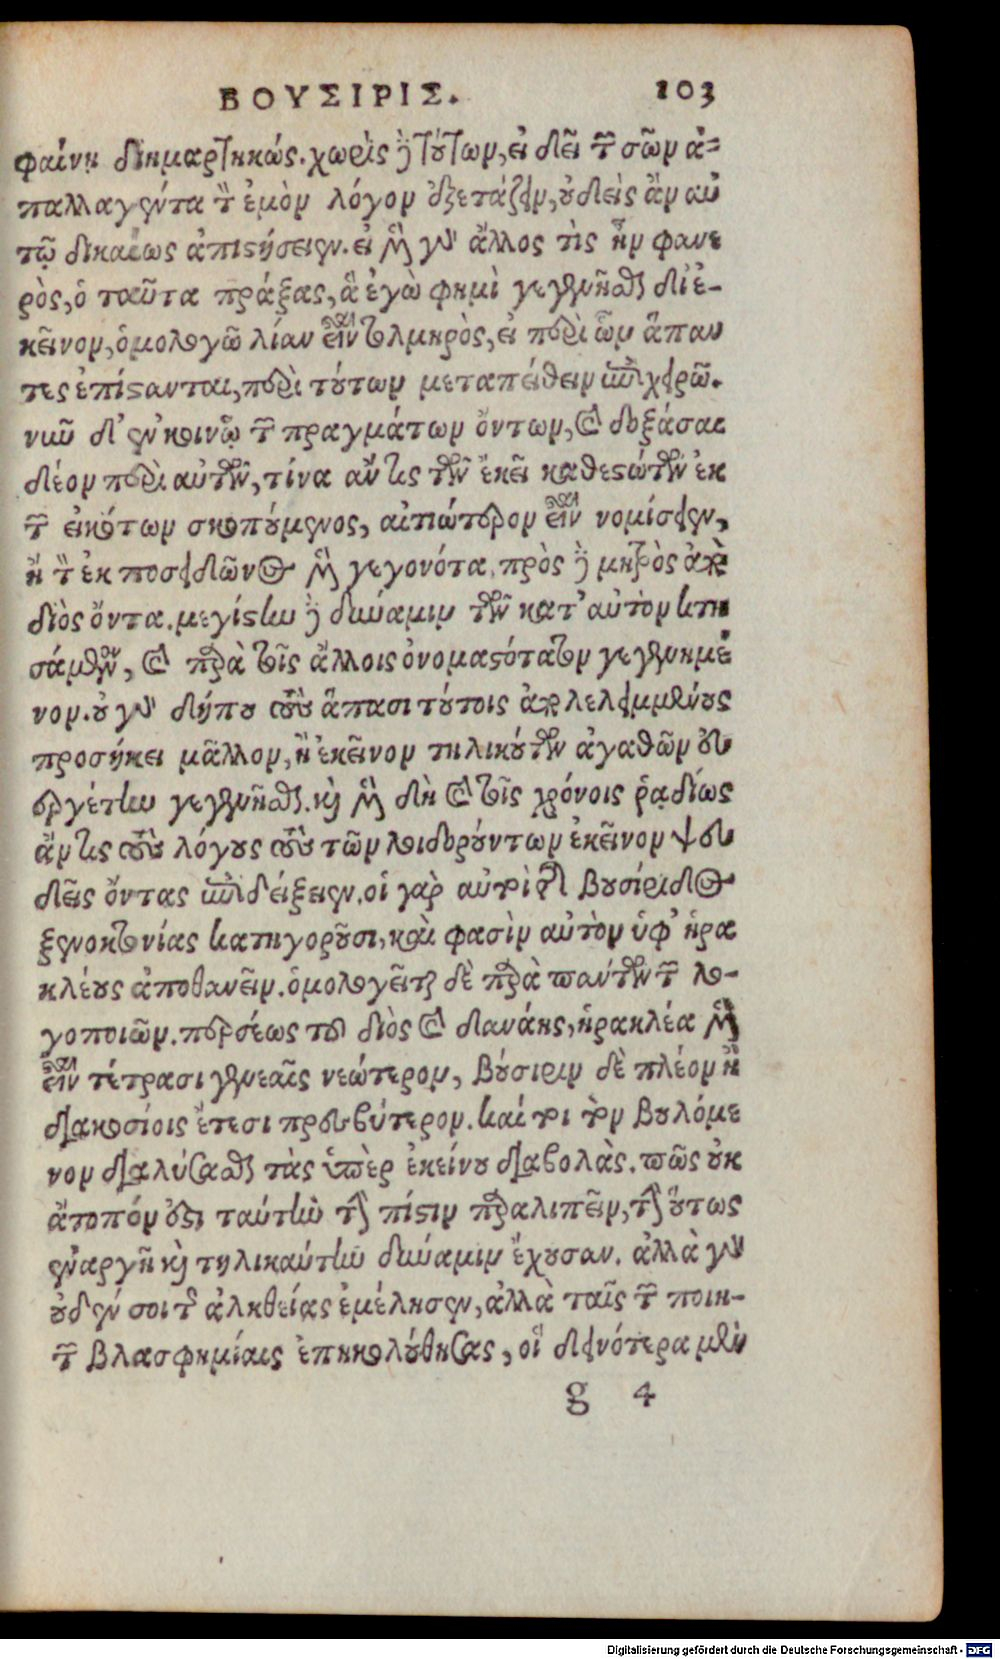 ΒΟΥΣΙΡΙΣ. 103
φαίνῃ διημαρτηκώς. χωρὶς δὲ τούτων, εἰ δεῖ τῶν σῶν ἀ-
παλλαγέντα τὸν ἐμὸν λόγον ἐξετάζειν, οὐδεὶς ἂν αὐ
τῷ δικαίως ἀπιστήσειεν. εἰ μὲν γὰρ ἄλλος τὶς ἦν φανε
ρὸς, ὁ ταῦτα πράξας, ἃ ἐγὼ φημὶ γεγενῆσθαι δι' ἐ-
κεῖνον, ὁμολογῶ λίαν εἶναι τολμηρὸς, εἰ περὶ ὧν ἅπαν
τες ἐπίστανται, περὶ τούτων μεταπείθειν ἐπιχειρῶ.
νῦν δ' ἐν κοινῷ τῶν πραγμάτων ὄντων, καὶ δοξάσαι
δέον περὶ αὐτῶν, τίνα ἄν τις τῶν ἐκεῖ καθεστώτων ἐκ
τῶν εἰκότων σκοπούμενος, αἰτιώτερον εἶναι νομίσειεν,
ἢ τὸν ἐκ ποσειδῶνος μὲν γεγονότα, πρὸς δὲ μητρὸς ἀπὸ
διὸς ὄντα. μεγίστην δὲ δύναμιν τῶν κατ' αὐτὸν κτη
σάμενον, καὶ παρὰ τοῖς ἄλλοις ὀνομαστότατον γεγενημέ
νον. οὐ γὰρ δήπου τοὺς ἅπασι τούτοις ἀπολελειμμένους
προσήκει μᾶλλον, ἢ ἐκεῖνον τηλικούτων ἀγαθῶν εὐ
εργέτην γεγενῆσθαι. καὶ μὲν δὴ καὶ τοῖς χρόνοις ῥᾳδίως
ἄν τις τοὺς λόγους τοὺς τῶν λοιδορούντων ἐκεῖνον ψευ
δεῖς ὄντας ἐπιδείξειεν. οἱ γὰρ αὐτοὶ τῆς βουσίριδος
ξενοκτονίας κατηγοροῦσι, καὶ φασὶν αὐτὸν ὑφ' ἡρα
κλέους ἀποθανεῖν. ὁμολογεῖται δὲ παρὰ πάντων τῶν λο-
γοποιῶν. περσέως τοῦ διὸς καὶ δανάης, ἡρακλέα μὲν
εἶναι τέτρασι γενεαῖς νεώτερον, βούσιριν δὲ πλέον ἢ
διακοσίοις ἔτεσι πρεσβύτερον. καί τοι τὸν βουλόμε
νον διαλύσασθαι τὰς ὑπὲρ ἐκείνου διαβολὰς. πῶς οὐκ
ἄτοπόν ἐστι ταύτην τὴν πίστιν παραλιπεῖν, τὴν οὕτως
ἐναργῆ καὶ τηλικαύτην δύναμιν ἔχουσαν. ἀλλὰ γὰρ
οὐδέν σοι τῆς ἀληθείας ἐμέλησεν, ἀλλὰ ταῖς τῶν ποιη-
τῶν βλασφημίαις ἐπηκολούθησας, οἳ δεινότερα μὲν
g 4
Digitalisierung gefördert durch die Deutsche Forschungsgemeinschaft - DFG